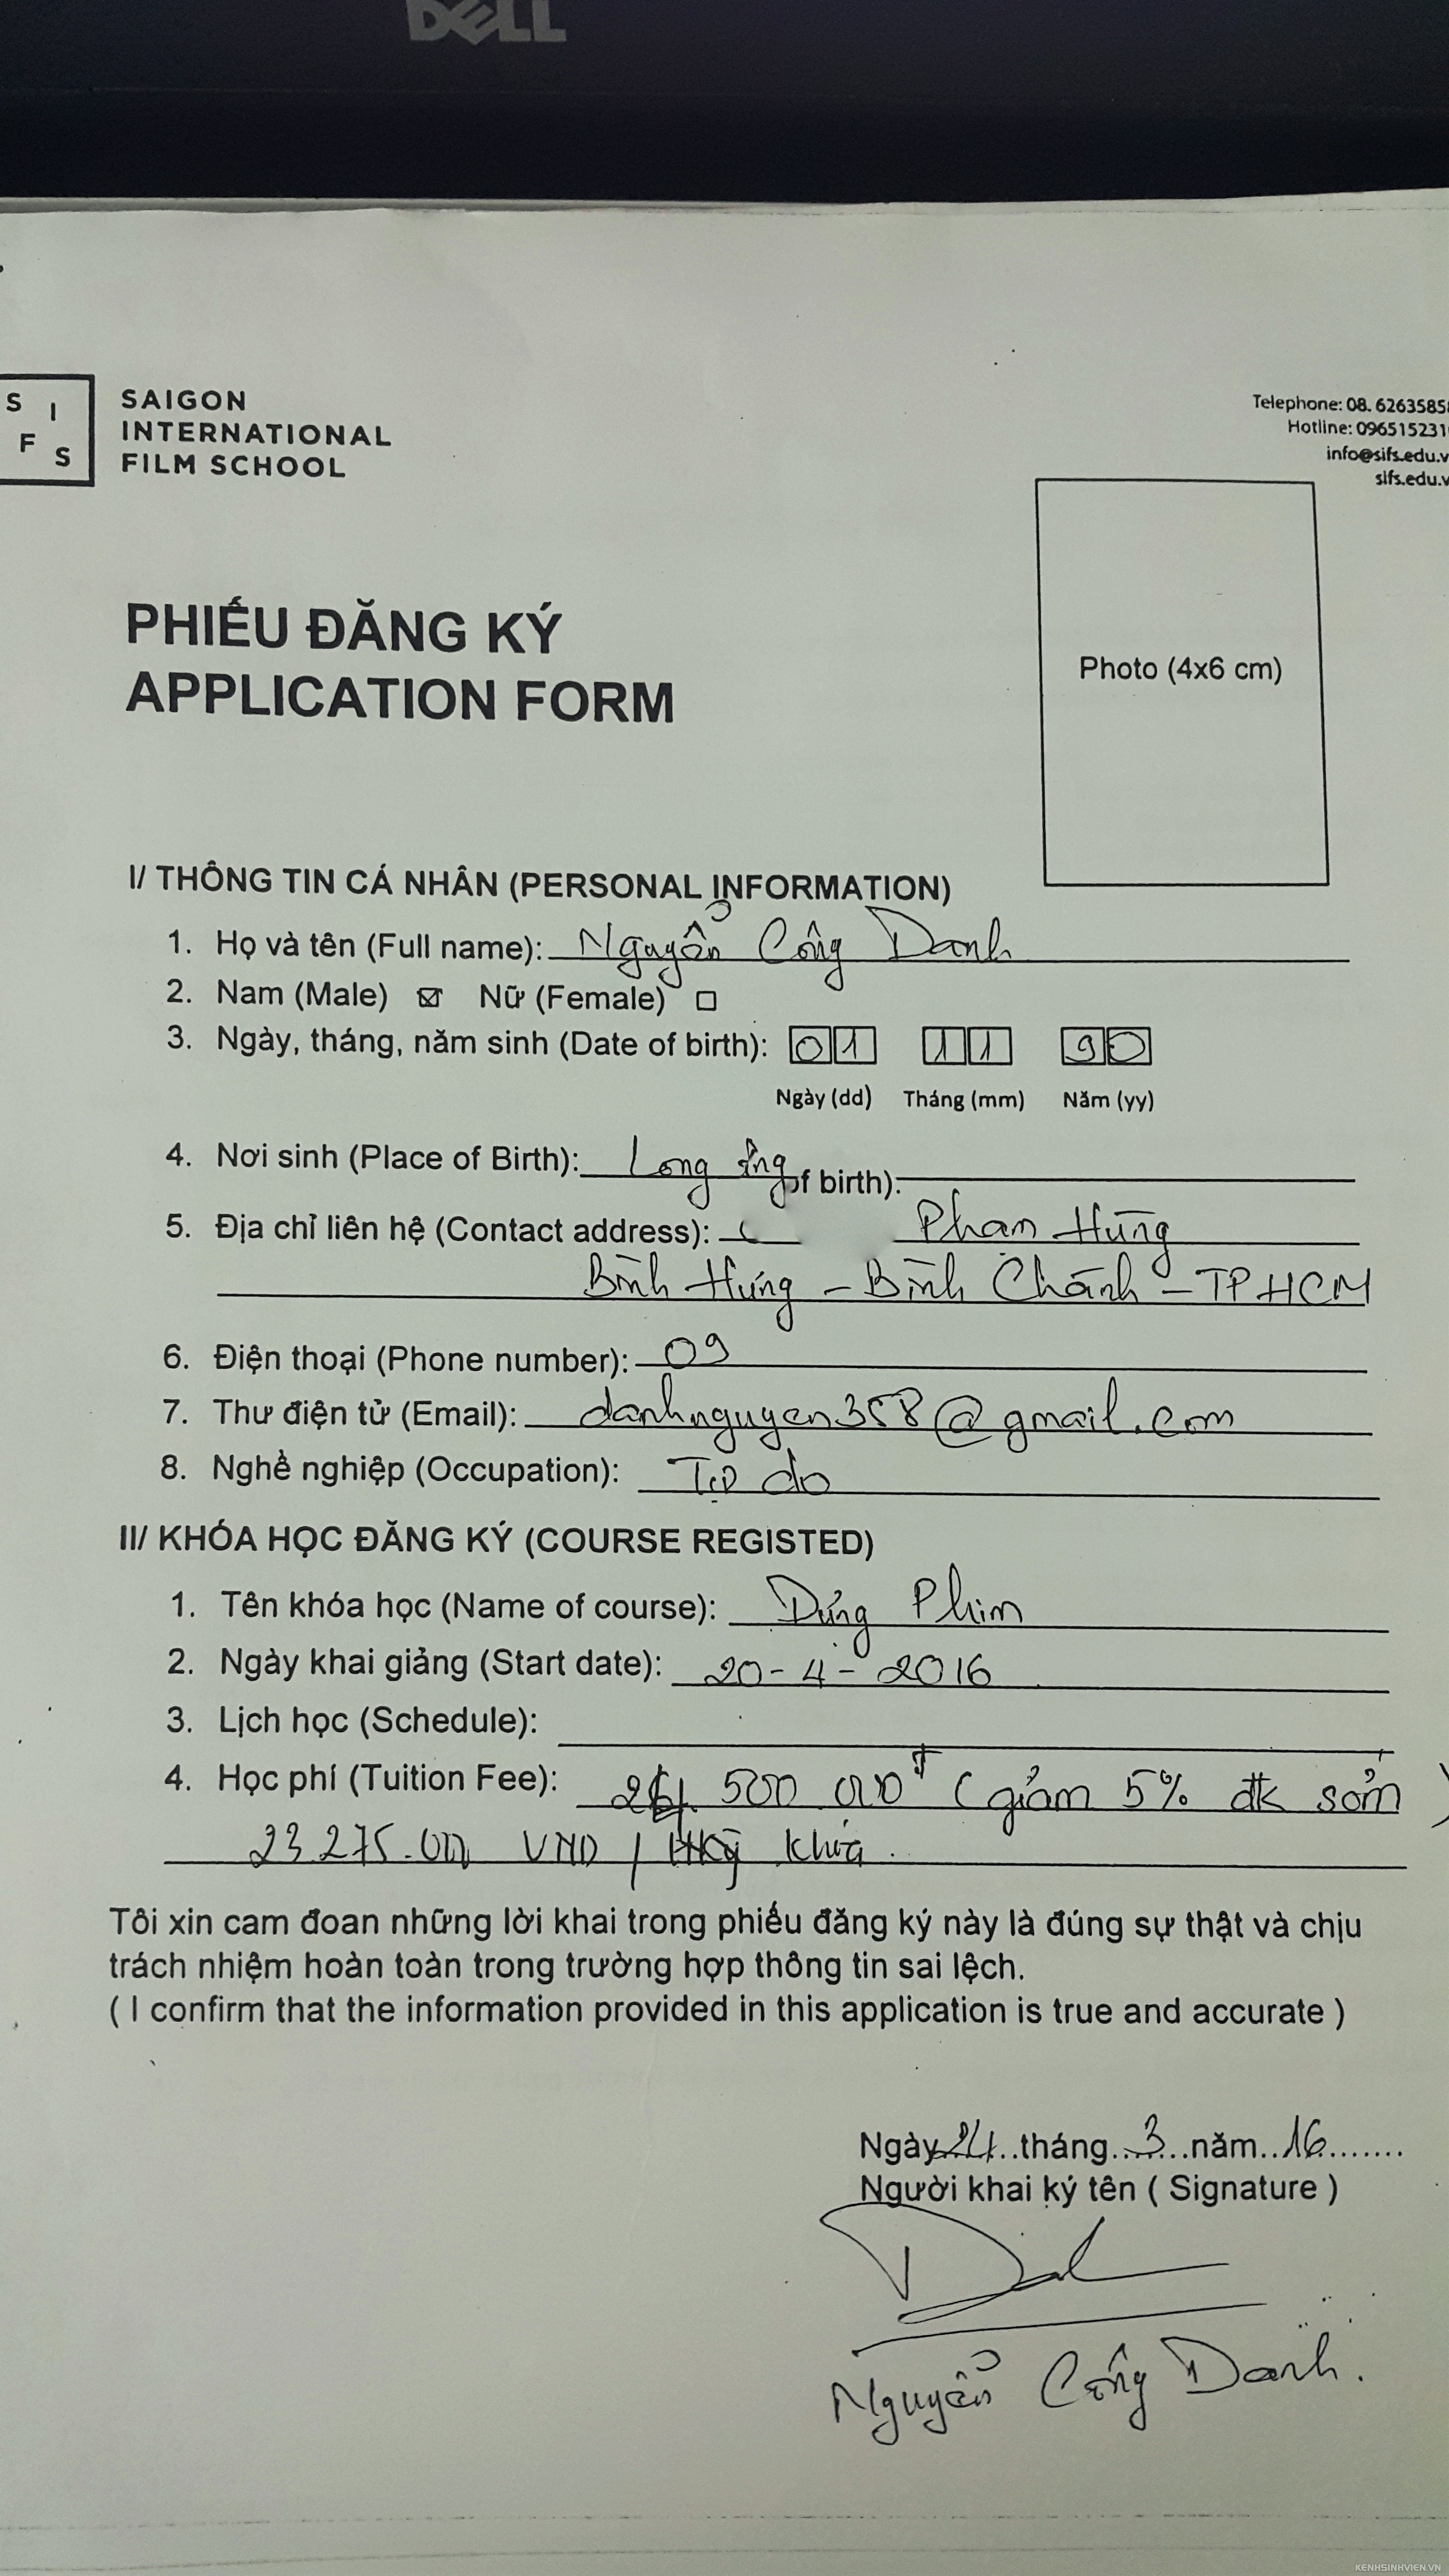 DELL
S I
F S
SAIGON
INTERNATIONAL
FILM SCHOOL
Telephone: 08. 6263585
Hotline: 096515231
info@sifs.edu.v
sifs.edu.v
Photo (4x6 cm)
PHIẾU ĐĂNG KÝ
APPLICATION FORM
I/ THÔNG TIN CÁ NHÂN (PERSONAL INFORMATION)
1. Họ và tên (Full name): Nguyễn Công Danh
2. Nam (Male) ☒ Nữ (Female) ☐
3. Ngày, tháng, năm sinh (Date of birth): 01 11 90
Ngày (dd) Tháng (mm) Năm (yy)
4. Nơi sinh (Place of Birth): Long of birth):
5. Địa chỉ liên hệ (Contact address): Phạm Hùng
Bình Hưng - Bình Chánh - TPHCM
6. Điện thoại (Phone number): 09
7. Thư điện tử (Email): danhnguyen358@gmail.com
8. Nghề nghiệp (Occupation): Tự do
II/ KHÓA HỌC ĐĂNG KÝ (COURSE REGISTED)
1. Tên khóa học (Name of course): Dựng Phim
2. Ngày khai giảng (Start date): 20-4-2016
3. Lịch học (Schedule):
4. Học phí (Tuition Fee): 500 000đ (giảm 5% đk sớm)
23.275.000 VND / khóa.
Tôi xin cam đoan những lời khai trong phiếu đăng ký này là đúng sự thật và chịu
trách nhiệm hoàn toàn trong trường hợp thông tin sai lệch.
( I confirm that the information provided in this application is true and accurate )
Ngày 24..tháng..3..năm..16.......
Người khai ký tên ( Signature )
Nguyễn Công Danh.
KENHSINHVIEN.VN